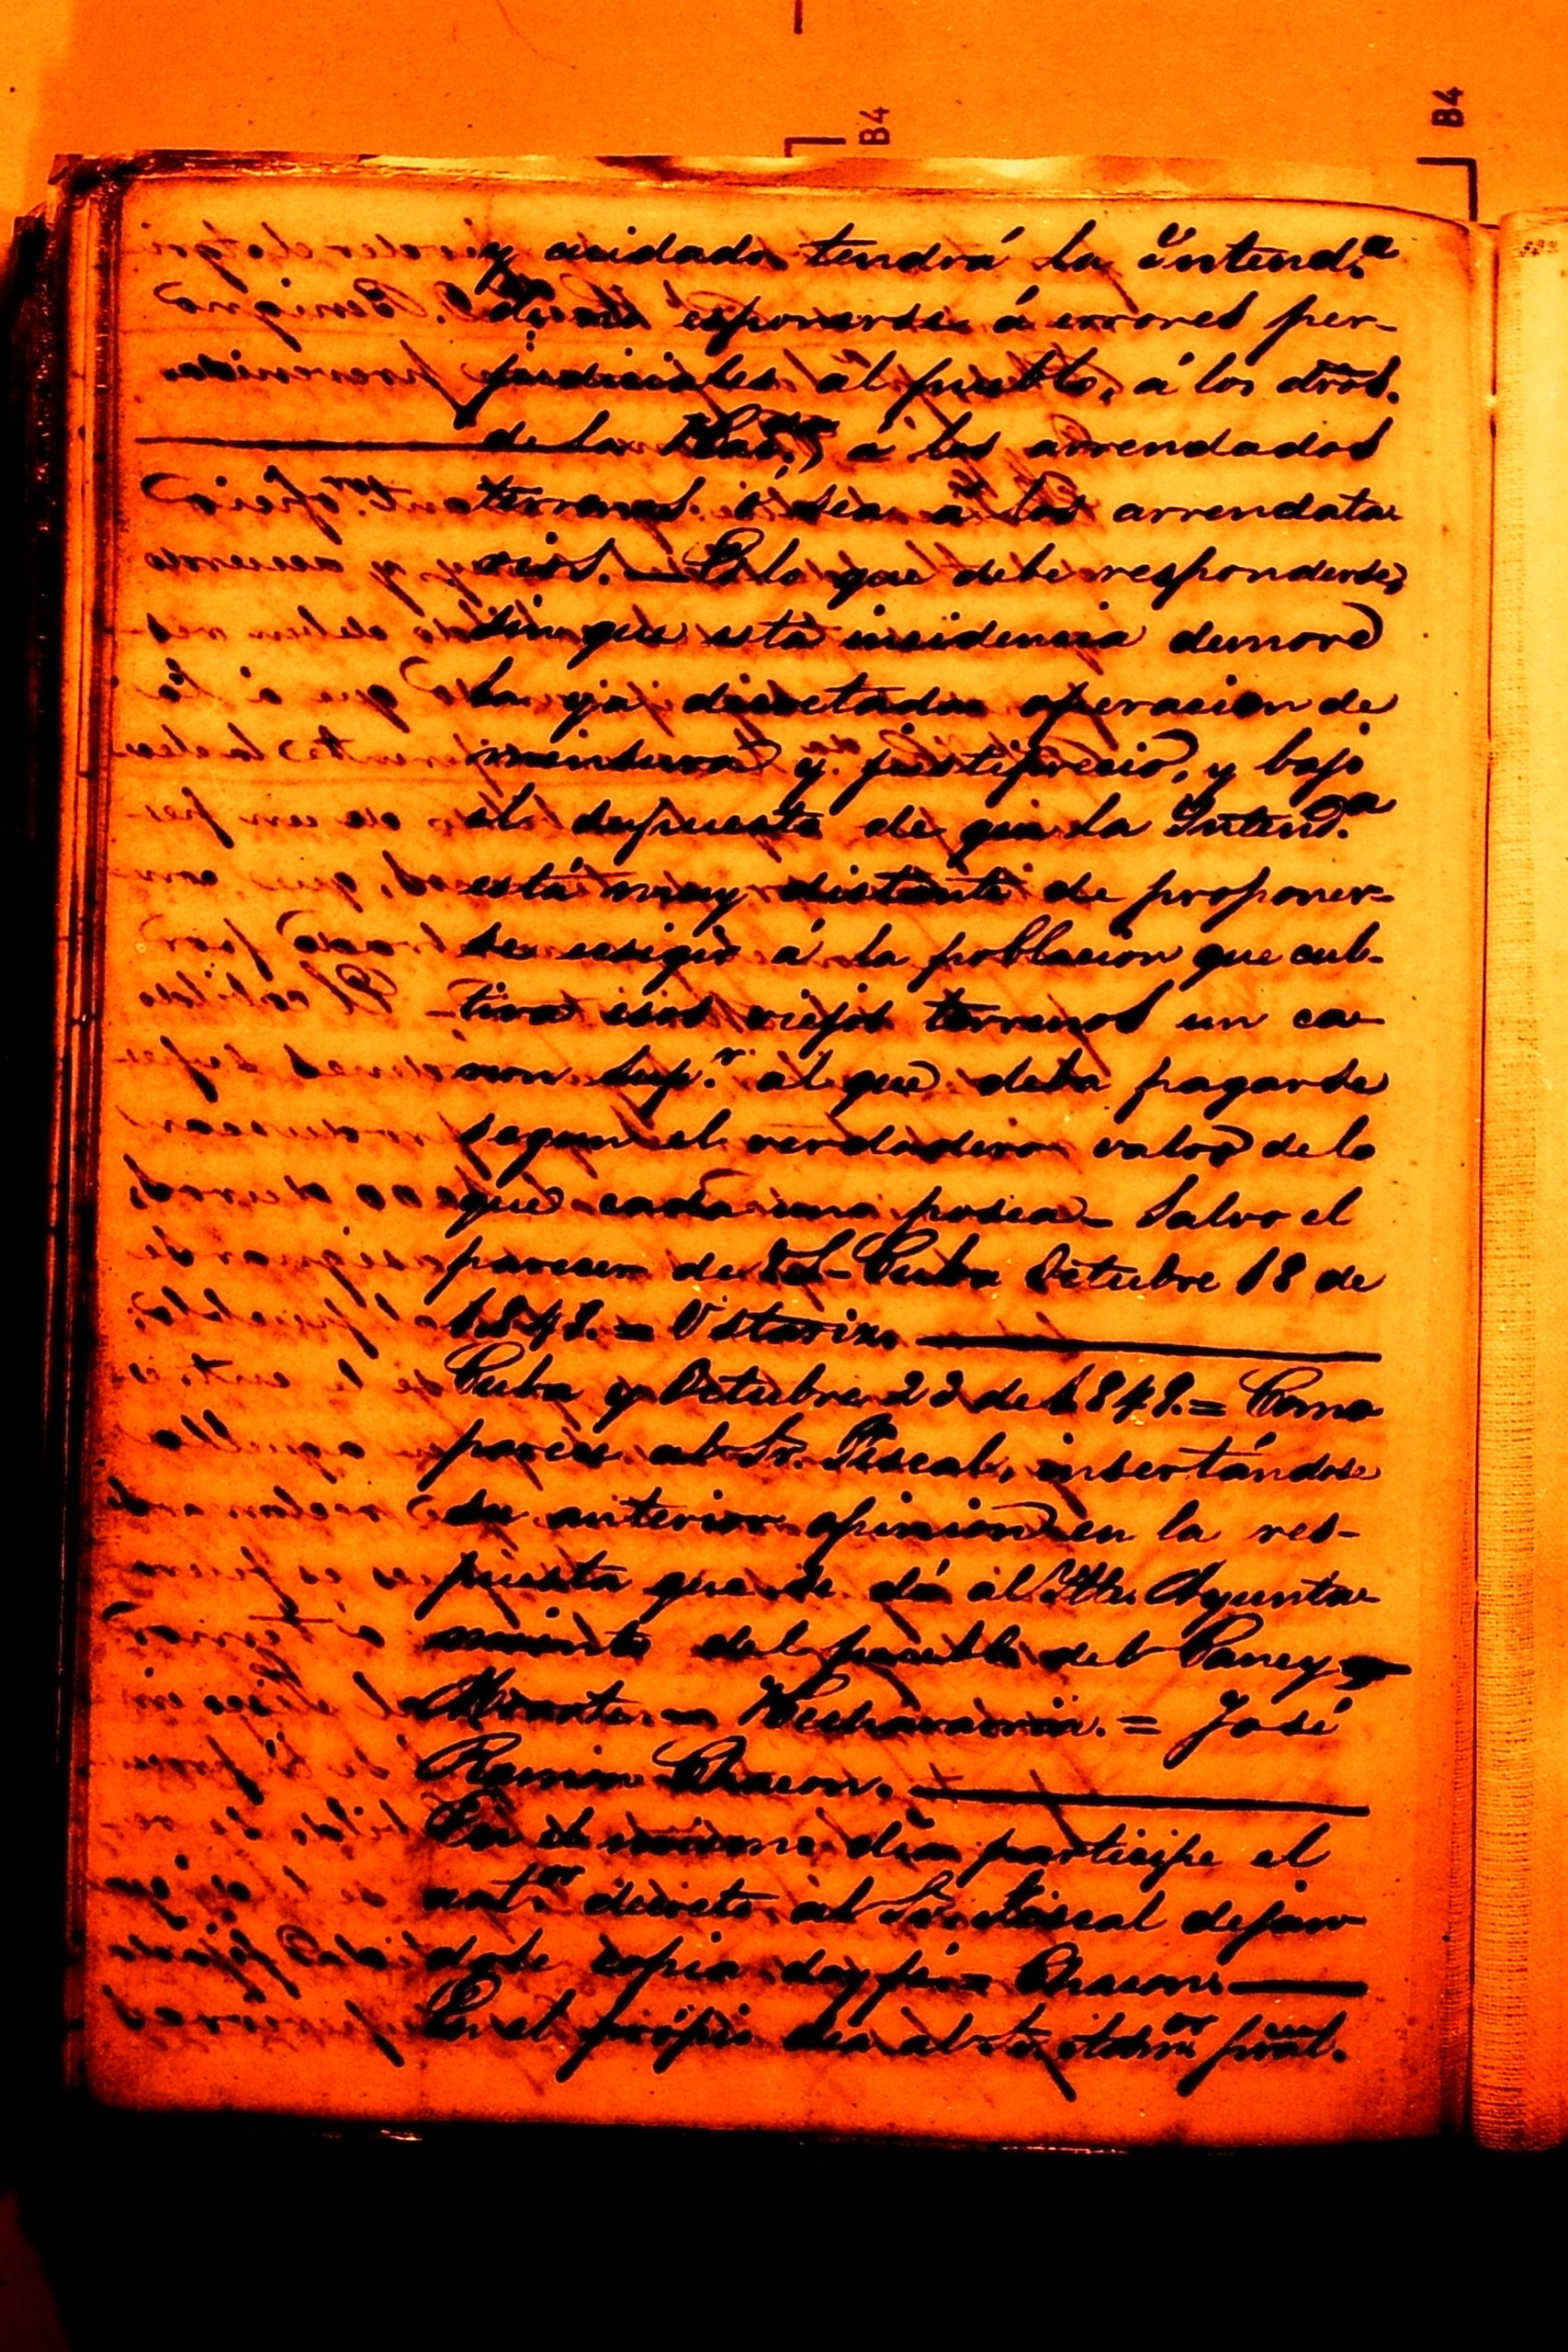 B4
B4
y cuidado tendrá la Intend.ª
esponerse á errores per-
judiciales al pueblo, á los dros.
de la Hac.da, á los arrendados
terrenos ó sea á los arrendata
rios. — Es lo que debe responderse,
sin que esta incidencia demore
la ya decretada operacion de
mensura y justiprecio, y bajo
el supuesto de que la Intend.ª
está muy distante de proponer-
se ecsigir á la poblacion que cul-
tiva esos viejos terrenos un ca-
non sup.r al que deba pagarse
segun el verdadero valor de lo
que cada uno posea — Salvo el
parecer de VS — Cuba Octubre 18 de
1848. = Ostariz.
Cuba y Octubre 23 de 1848. = Como
parece al Sr. Fiscal, insertándose
su anterior opinion en la res-
puesta que se dá al Ilte. Ayunta-
miento del pueblo del Caney —
= Hechavarria. = José
Ramon Chacon.
En el mismo dia participe el
ant.or decreto al Sr. Fiscal dejan
dole copia doy fé = Chacon
En el própio dia al Sr. Adm.or pral.